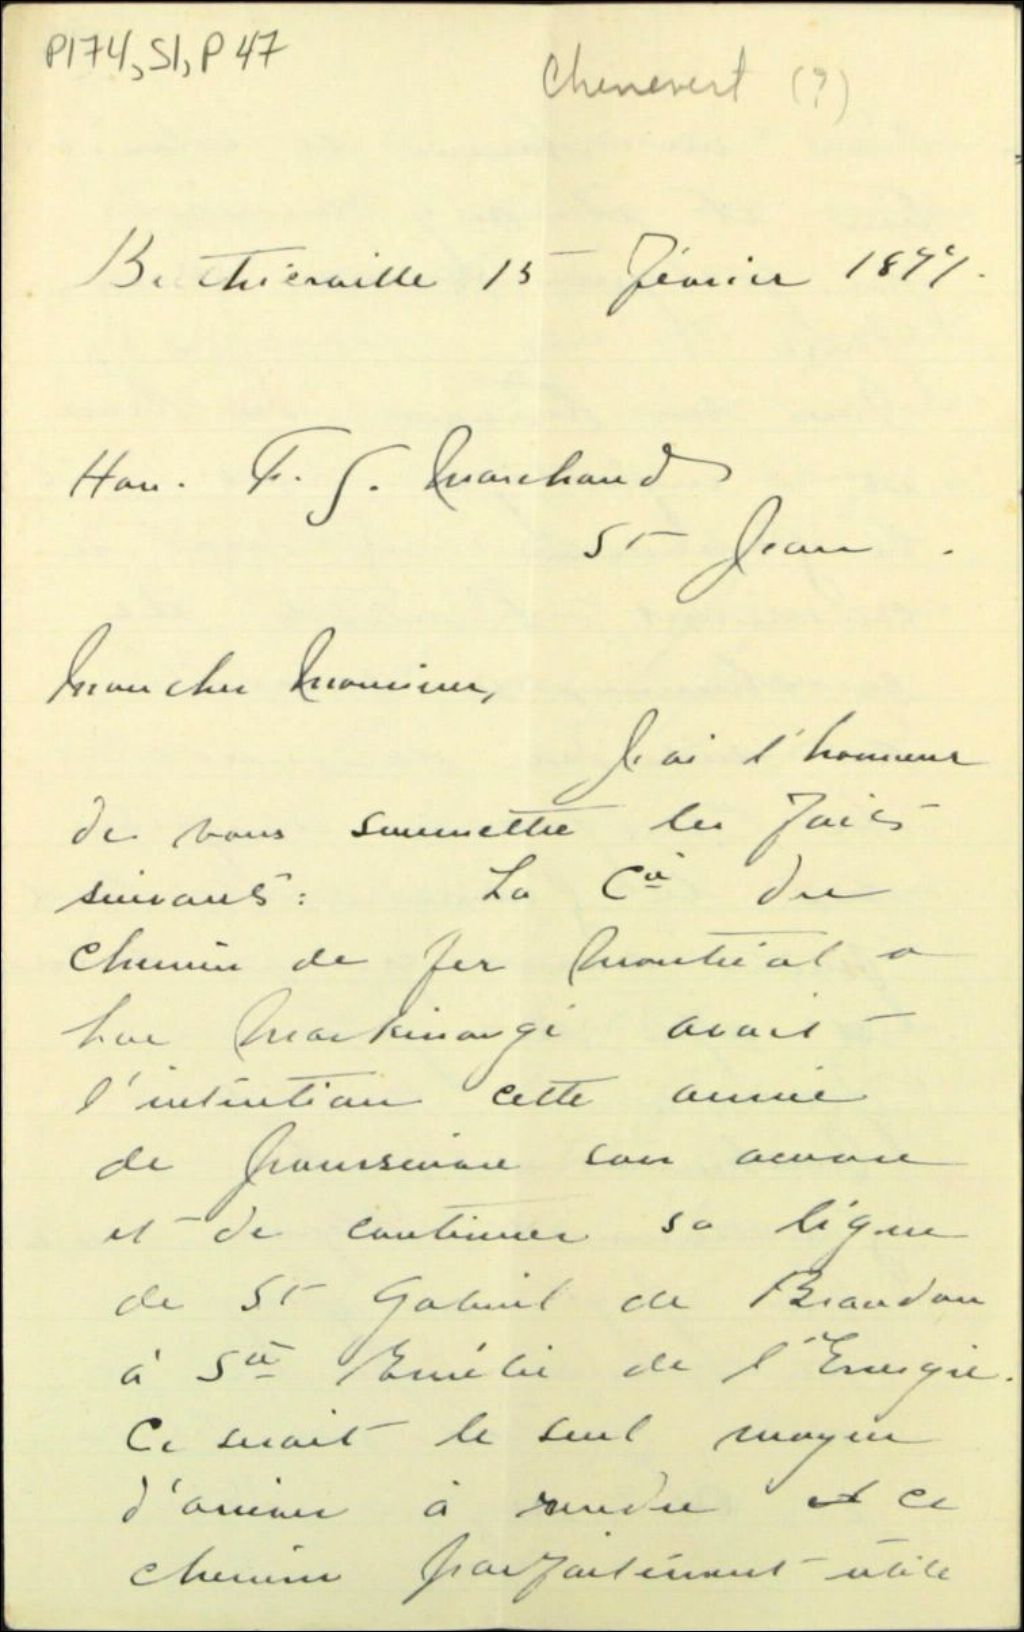 P174, S1, P47
Chenevert (?)
Berthierville 15 Février 1899.
Hon. F. G. Marchand
St Jean.
Mon cher Monsieur,
J'ai l'honneur
de vous soumettre les faits
suivants: La Cie du
Chemin de fer Montréal a
Lac Maskinongé avait
l'intention cette année
de poursuivre son œuvre
et de continuer sa ligne
de St Gabriel de Brandon
à Ste Emélie de l'Energie.
Ce serait le seul moyen
d'arriver à rendre ce
chemin parfaitement utile